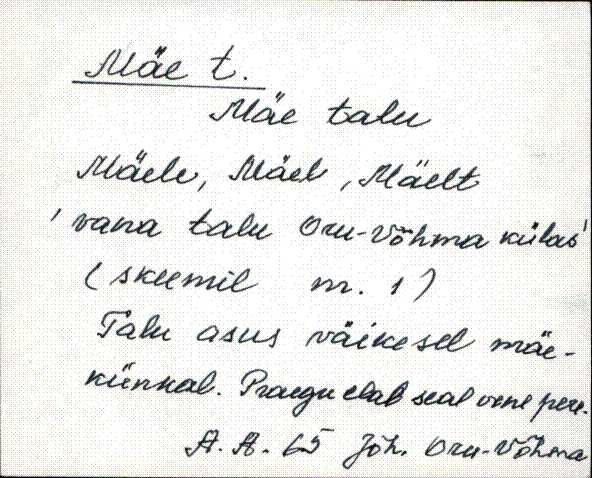 Mäe t.
Mäe talu
Mäele, Mäel, Mäelt
'vana talu Oru-Võhma külas'
(skeemil nr. 1)
Talu asus väikesel mäe-
künkal. Praegu elab seal vene pere.
A. A. 65 Jõh. Oru-Võhma